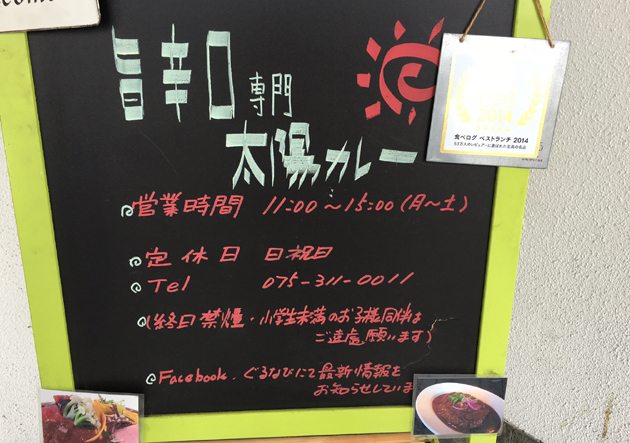 旨辛口専門
太陽カレー
2014
食べログ ベストランチ 2014
営業時間 11:00～15:00(月～土)
定休日 日祝日
Tel 075-311-0011
(終日禁煙・小学生未満のお子様同伴は
ご遠慮願います)
Facebook.ぐるなびにて最新情報を
お知らせしていま